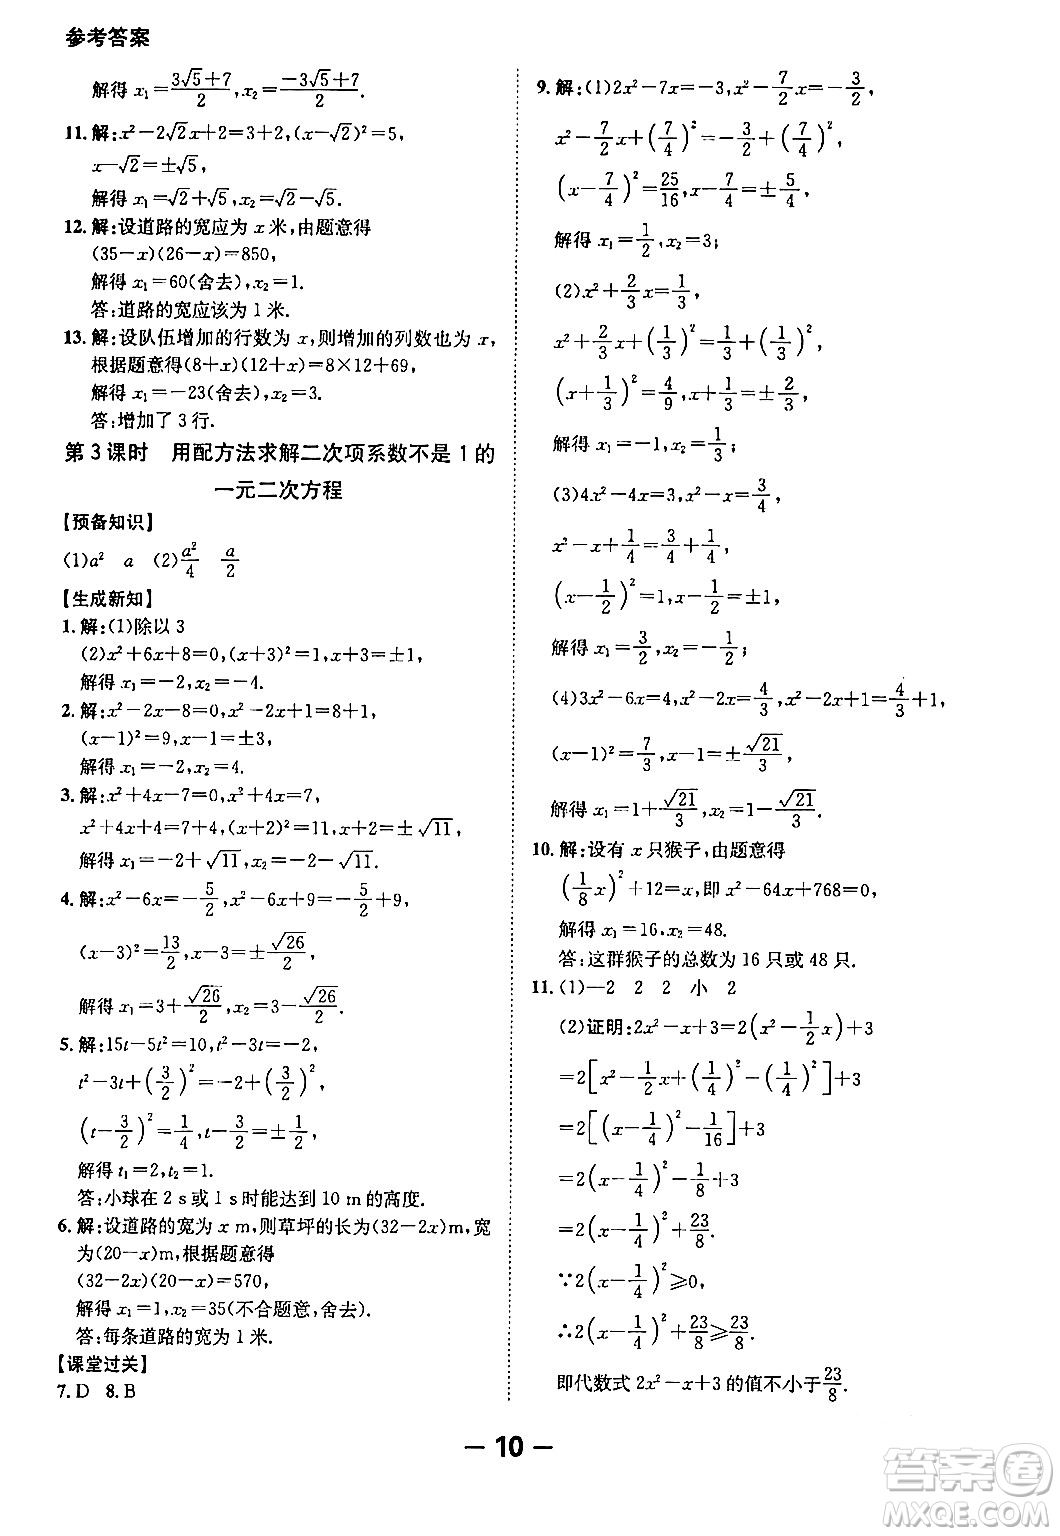 参考答案
解得 x₁=(3√5+7)/2,x₂=(-3√5+7)/2.
11.解:x²-2√2x+2=3+2,(x-√2)²=5,
x-√2=±√5,
解得 x₁=√2+√5,x₂=√2-√5.
12.解:设道路的宽应为 x 米,由题意得
(35-x)(26-x)=850,
解得 x₁=60(舍去),x₂=1.
答:道路的宽应该为 1 米.
13.解:设队伍增加的行数为 x,则增加的列数也为 x,
根据题意得(8+x)(12+x)=8×12+69,
解得 x₁=-23(舍去),x₂=3.
答:增加了 3 行.
第 3 课时 用配方法求解二次项系数不是 1 的
一元二次方程
【预备知识】
(1)a² a (2)a²/4 a/2
【生成新知】
1.解:(1)除以 3
(2)x²+6x+8=0,(x+3)²=1,x+3=±1,
解得 x₁=-2,x₂=-4.
2.解:x²-2x-8=0,x²-2x+1=8+1,
(x-1)²=9,x-1=±3,
解得 x₁=-2,x₂=4.
3.解:x²+4x-7=0,x²+4x=7,
x²+4x+4=7+4,(x+2)²=11,x+2=±√11,
解得 x₁=-2+√11,x₂=-2-√11.
4.解:x²-6x=-5/2,x²-6x+9=-5/2+9,
(x-3)²=13/2,x-3=±√26/2,
解得 x₁=3+√26/2,x₂=3-√26/2.
5.解:15t-5t²=10,t²-3t=-2,
t²-3t+(3/2)²=-2+(3/2)²,
(t-3/2)²=1/4,t-3/2=±1/2,
解得 t₁=2,t₂=1.
答:小球在 2 s或 1 s时能达到 10 m的高度.
6.解:设道路的宽为 x m,则草坪的长为(32-2x)m,宽
为(20-x)m,根据题意得
(32-2x)(20-x)=570,
解得 x₁=1,x₂=35(不合题意,舍去).
答:每条道路的宽为 1 米.
【课堂过关】
7.D 8.B
9.解:(1)2x²-7x=-3,x²-7/2x=-3/2,
x²-7/2x+(7/4)²=-3/2+(7/4)²,
(x-7/4)²=25/16,x-7/4=±5/4,
解得 x₁=1/2,x₂=3;
(2)x²+2/3x=1/3,
x²+2/3x+(1/3)²=1/3+(1/3)²,
(x+1/3)²=4/9,x+1/3=±2/3,
解得 x₁=-1,x₂=1/3;
(3)4x²-4x=3,x²-x=3/4,
x²-x+1/4=3/4+1/4,
(x-1/2)²=1,x-1/2=±1,
解得 x₁=3/2,x₂=-1/2;
(4)3x²-6x=4,x²-2x=4/3,x²-2x+1=4/3+1,
(x-1)²=7/3,x-1=±√21/3,
解得 x₁=1+√21/3,x₂=1-√21/3.
10.解:设有 x 只猴子,由题意得
(1/8x)²+12=x,即 x²-64x+768=0,
解得 x₁=16,x₂=48.
答:这群猴子的总数为 16 只或 48 只.
11.(1)-2 2 2 小 2
(2)证明:2x²-x+3=2(x²-1/2x)+3
=2[x²-1/2x+(1/4)²-(1/4)²]+3
=2[(x-1/4)²-1/16]+3
=2(x-1/4)²-1/8+3
=2(x-1/4)²+23/8.
∵2(x-1/4)²⩾0,
∴2(x-1/4)²+23/8⩾23/8.
即代数式 2x²-x+3 的值不小于23/8.
-10-
答案圈
MXQE.COM